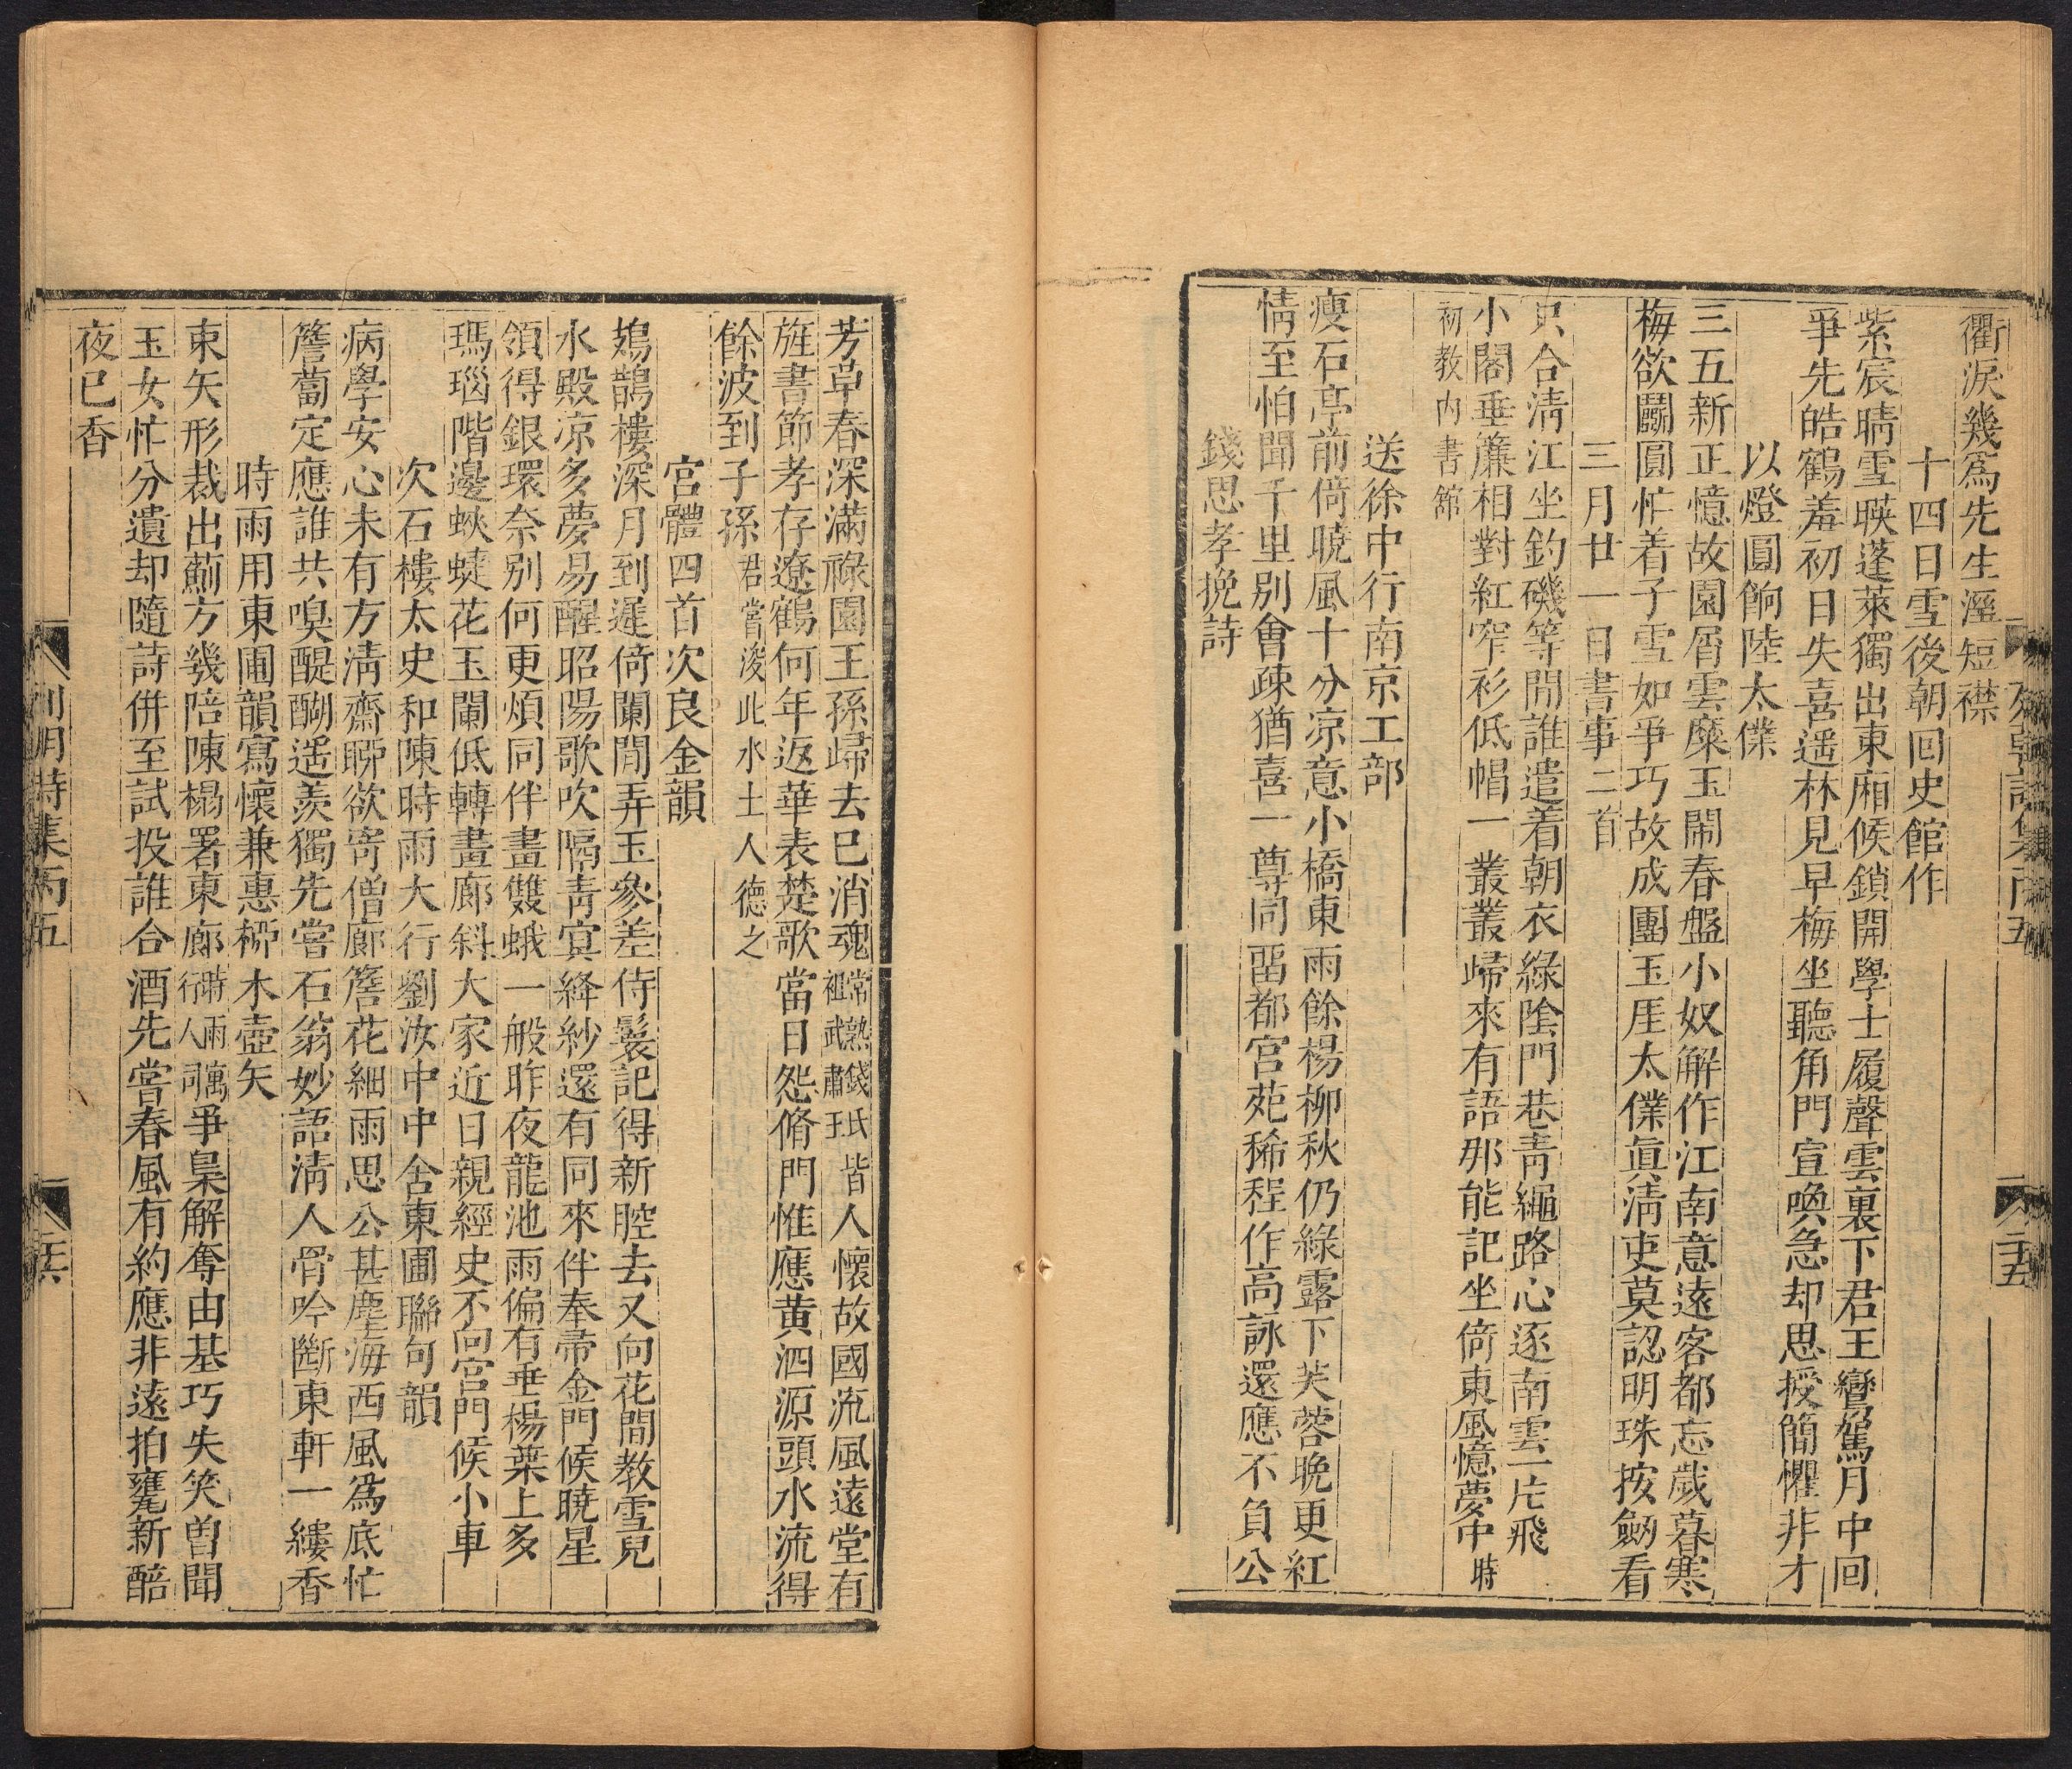 衢淚幾爲先生溼短襟
十四日雪後朝回史館作
紫宸晴雪暎蓬萊獨出東廂候鎖開學士履聲雲裏下君王鸞駕月中回
爭先皓鶴羞初日失喜遥林見早梅坐聽角門宣喚急却思授簡懼非才
以燈圓餉陸太僕
三五新正憶故園屑雲糜玉鬧春盤小奴解作江南意遠客都忘歲暮寒
梅欲鬪圓忙着子雪如爭巧故成團玉厓太僕眞淸吏莫認明珠按劒看
三月廿一日書事二首
只合淸江坐釣磯等閒誰遣着朝衣綠陰門巷靑繩路心逐南雲一片飛
小閣垂簾相對紅窄衫低帽一叢叢歸來有語那能記坐倚東風憶夢中時
初教內書舘
送徐中行南京工部
瘦石亭前倚曉風十分凉意小橋東雨餘楊柳秋仍綠露下芙蓉晚更紅
情至怕聞千里別會疎猶喜一尊同畱都宫苑稀程作高詠還應不負公
錢思孝挽詩
芳草春深滿祿園王孫歸去已消魂常熟錢氏皆祖武肅王人懷故國流風遠堂有
旌書節孝存遼鶴何年返華表楚歌當日怨脩門惟應黄泗源頭水流得
餘波到子孫君嘗浚此水土人德之
宮體四首次良金韻
鳷鵲樓深月到遲倚闌閒弄玉參差侍鬟記得新腔去又向花間教雪兒
水殿凉多夢易醒昭陽歌吹隔靑㝠絳紗還有同來伴奉帚金門候曉星
領得銀環奈別何更煩同伴畫雙蛾一般昨夜龍池雨偏有垂楊葉上多
瑪瑙階邊蛺蜨花玉闌低轉畫廊斜大家近日親經史不向宮門候小車
次石樓太史和陳時雨大行劉汝中中舍東圃聯句韻
病學安心未有方淸齋聊欲寄僧廊簷花細雨思公甚塵海西風爲底忙
簷蔔定應誰共嗅醍醐遥羨獨先嘗石翁妙語淸人骨吟斷東軒一縷香
時雨用東圃韻寫懷兼惠栁木壺矢
束矢形裁出薊方幾陪陳榻署東廊時雨寓行人司爭梟解奪由基巧失笑曾聞
玉女忙分遺却隨詩併至試投誰合酒先嘗春風有約應非遠拍甕新醅
夜已香